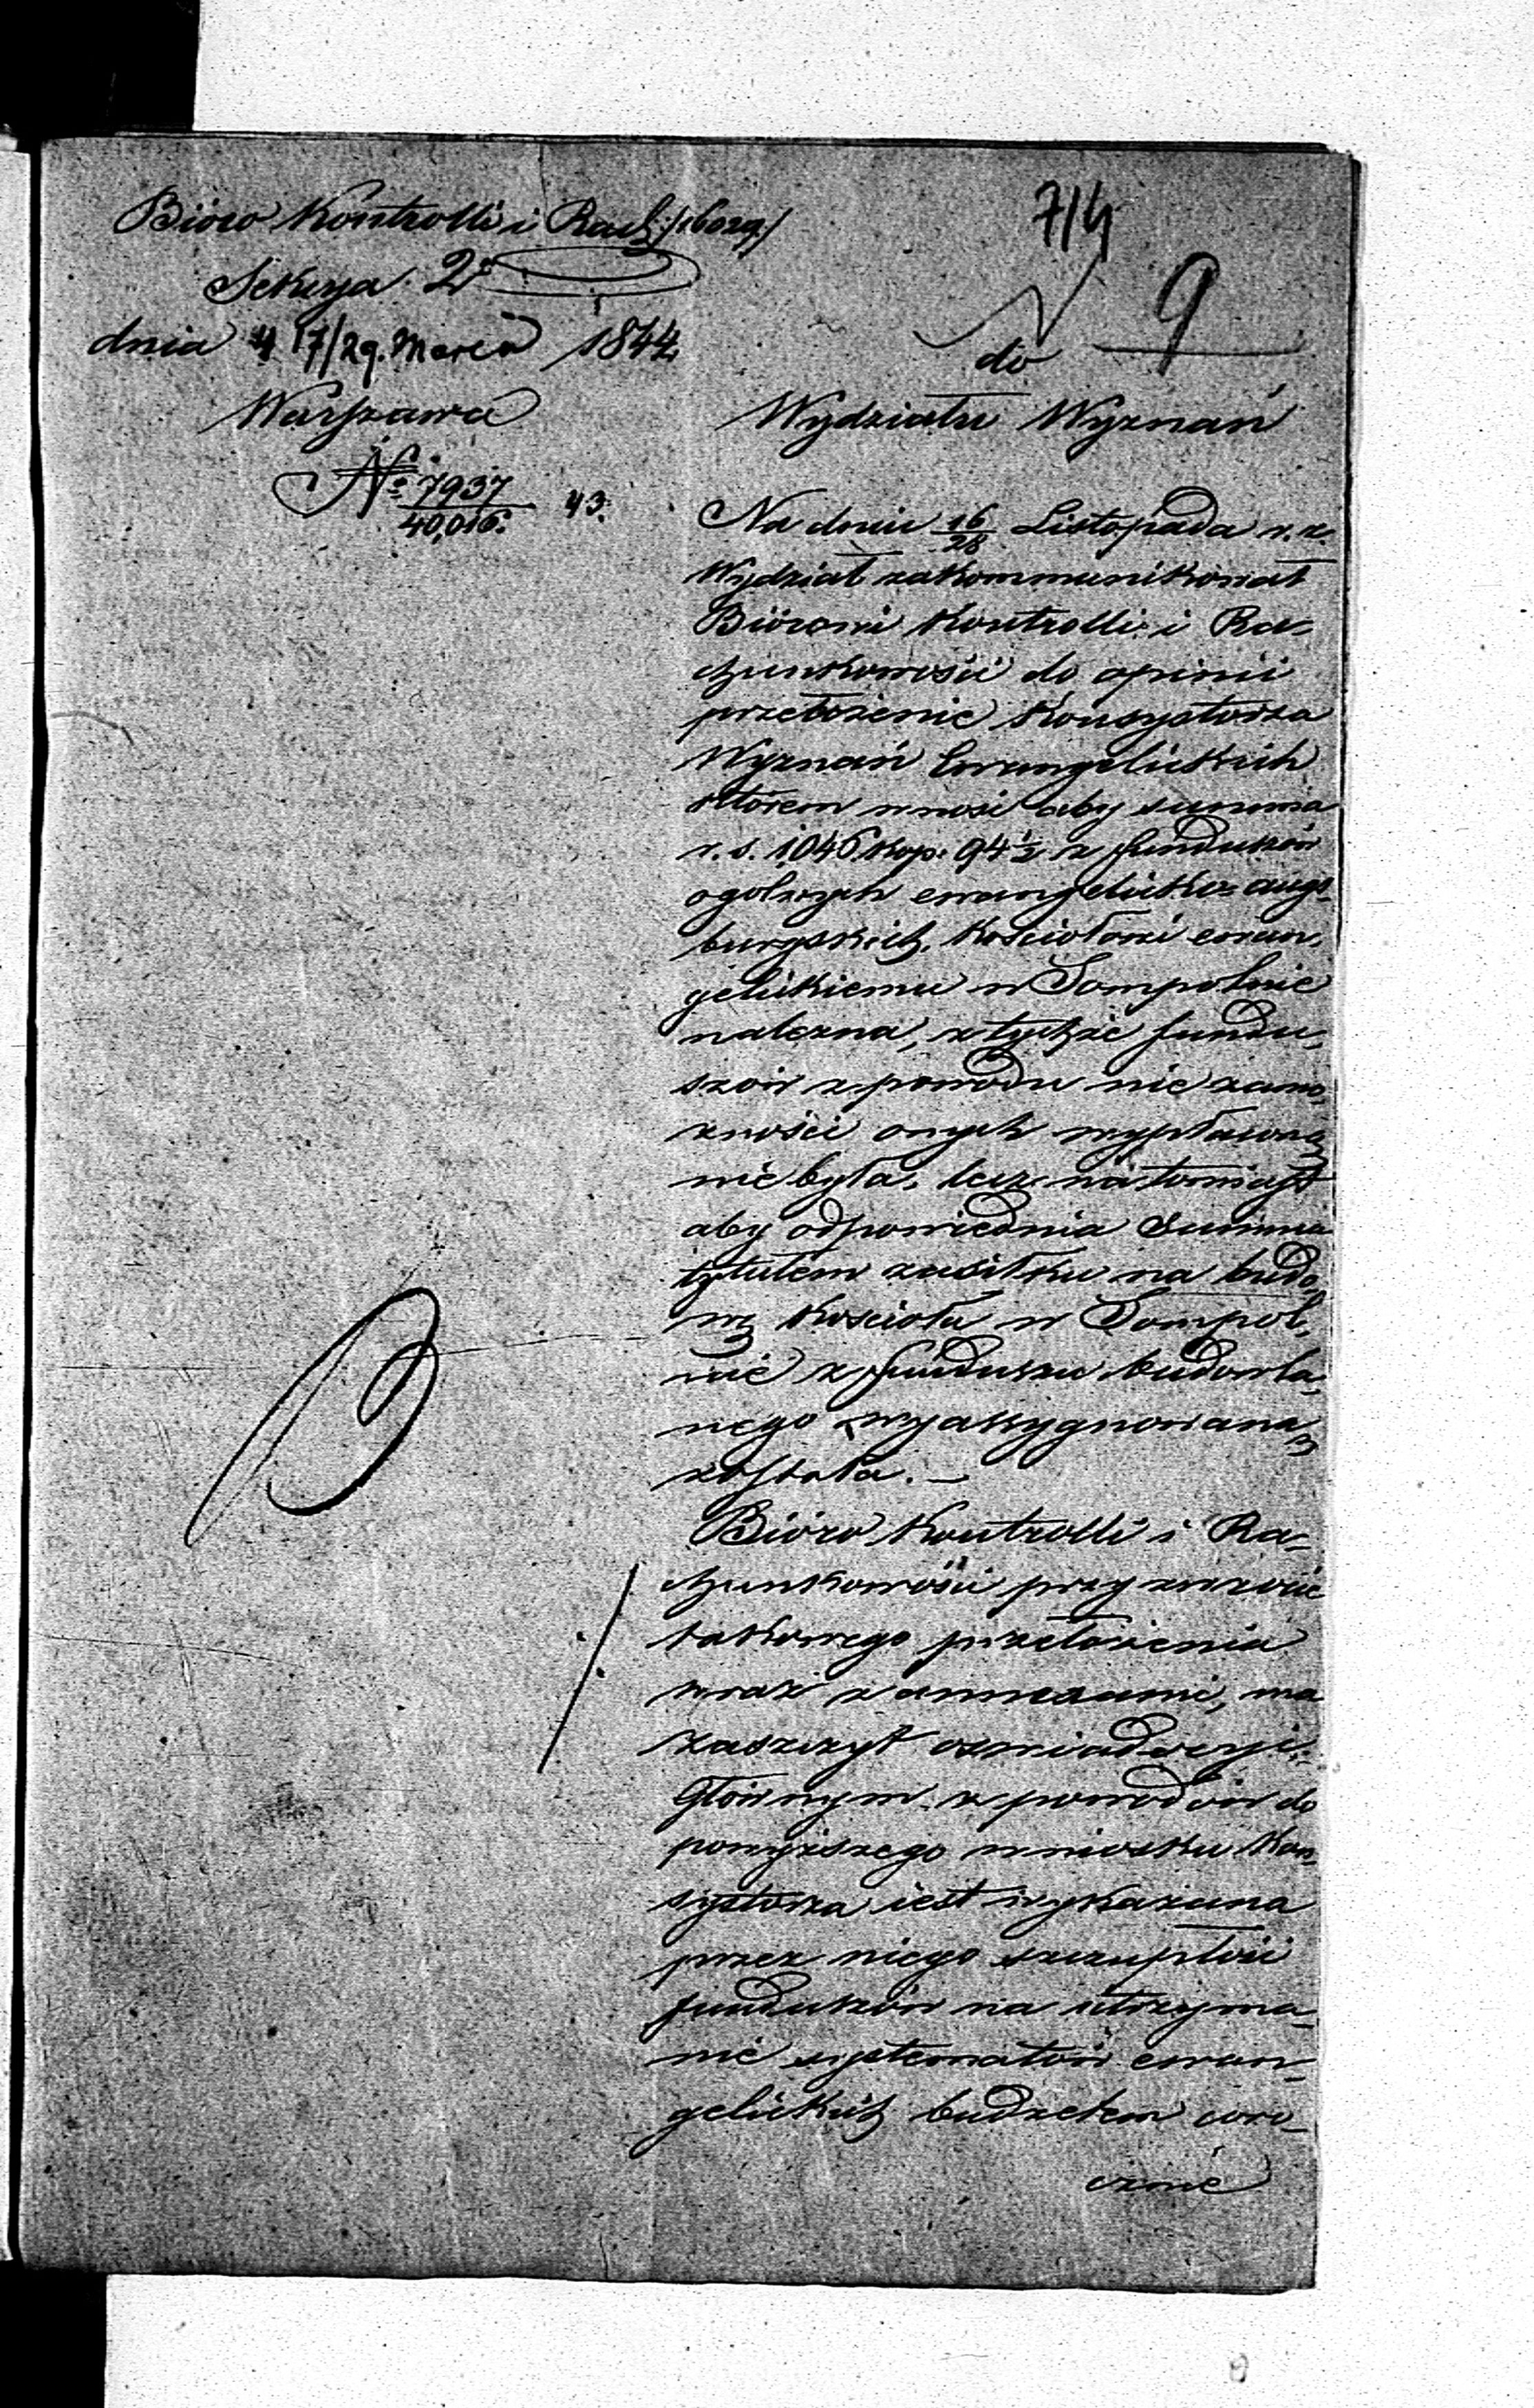 Bióro Kontrolli i Rach: /:6029/
Sekcya 2ª
dnia 17/29. Marca 1844
Warszawa
№ 7937
40,016. 43.
7/4
9
do
Wydziału Wyznań
Na dniu 16/28 Listopada r. z.
Wydział zakommunikował
Biórowi Kontrolli i Ra-
chunkowości do opinii
przełożenie Konsystorza
Wyznań Ewangelickich
którem wnosi aby summa
r. s. 1046 kop: 94½ z funduszów
ogólnych ewangelicko-augs-
burgskich, kościołowi ewan-
gelickiemu w Sompolnie
należna, z tychże fundu-
szów z powodu nie zamo-
żności onych wypłaconą
nie była, lecz natomiast
aby odpowiednia summa
tytułem zasiłku na budo-
wę kościoła w Sompol-
nie z funduszu budowla-
nego wyassygnowana
została. —
Bióro Kontrolli i Ra-
chunkowości przy zwrocie
takowego przełożenia
wraz z annexami, ma
zaszczyt oświadczyć:
Głównym z powodów do
powyższego wniosku Kon-
systorza iest wykazana
przez niego szczupłość
funduszów na utrzyma-
nie systematów ewan-
gelickich budżetem coro-
cznie
9